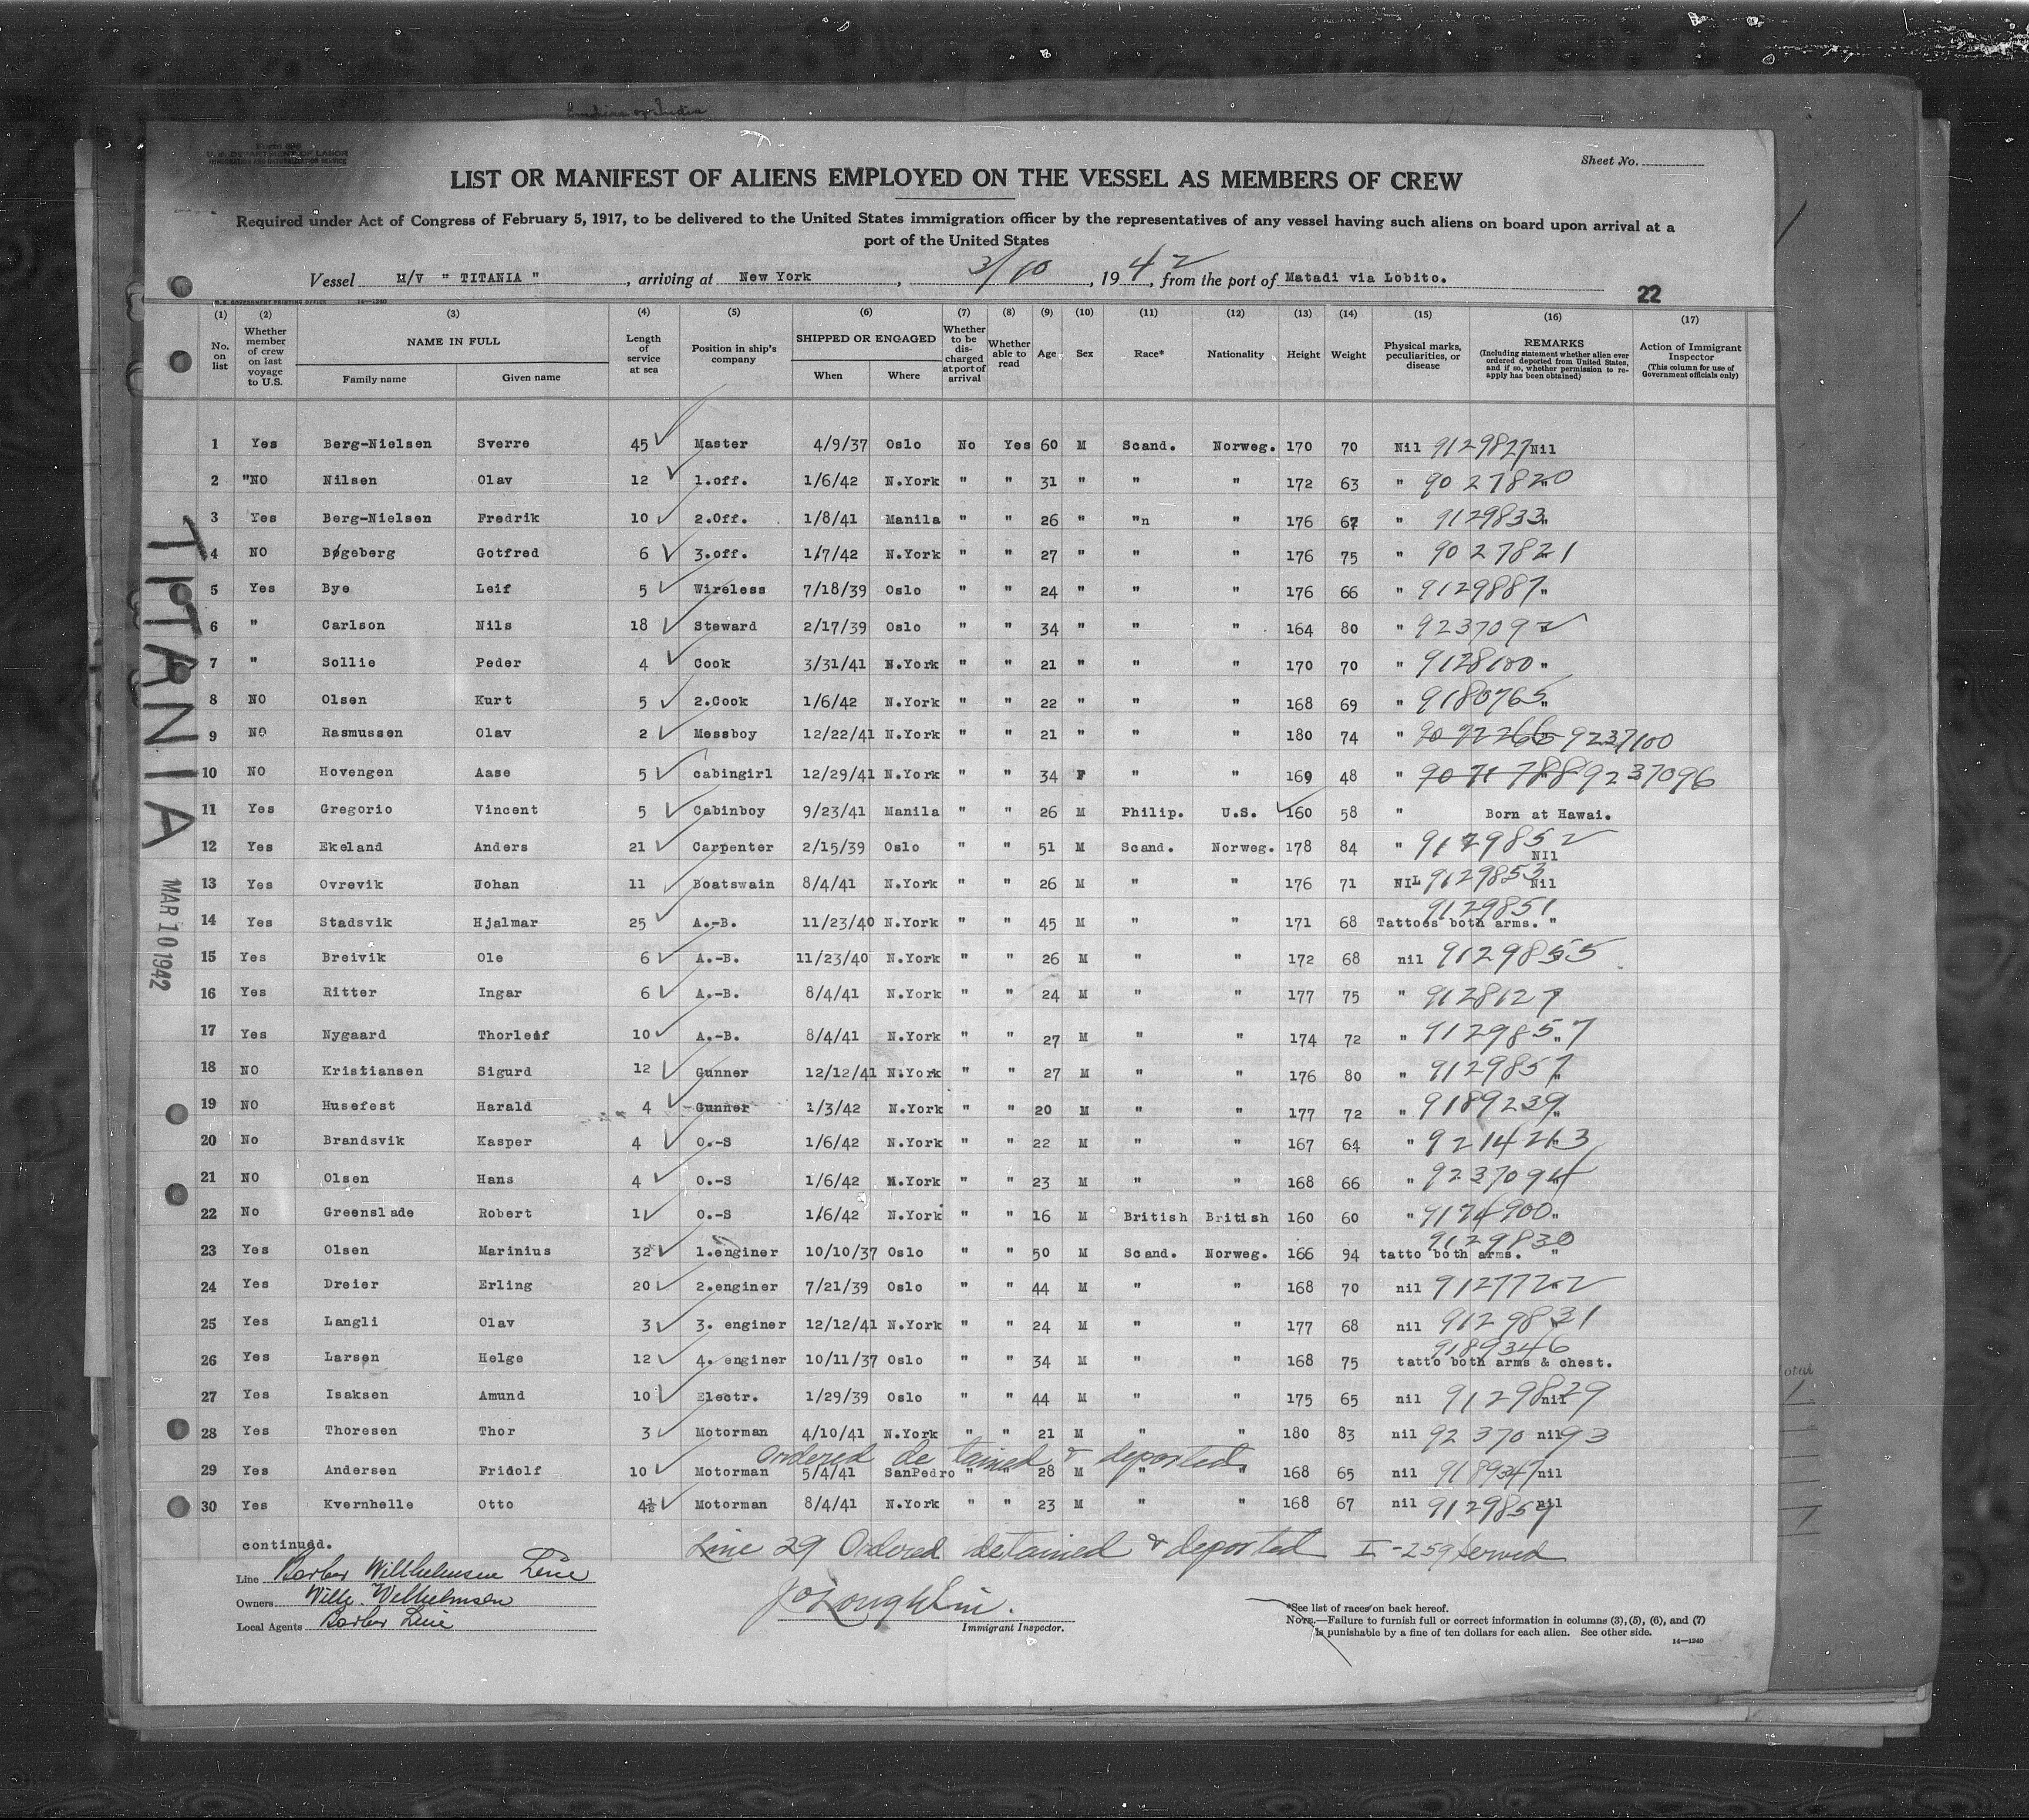 Form 689
U. S. DEPARTMENT OF LABOR
IMMIGRATION AND NATURALIZATION SERVICE
Sheet No.
LIST OR MANIFEST OF ALIENS EMPLOYED ON THE VESSEL AS MEMBERS OF CREW
Required under Act of Congress of February 5, 1917, to be delivered to the United States immigration officer by the representatives of any vessel having such aliens on board upon arrival at a
port of the United States
Vessel M/V " TITANIA " , arriving at New York , 3/10 , 1942 , from the port of Matadi via Lobito.
22
U. S. GOVERNMENT PRINTING OFFICE 14—1240
(1) (2) (3) (4) (5) (6) (7) (8) (9) (10) (11) (12) (13) (14) (15) (16) (17)
No. on list
Whether member of crew on last voyage to U.S.
NAME IN FULL
Family name Given name
Length of service at sea
Position in ship's company
SHIPPED OR ENGAGED
When Where
Whether to be discharged at port of arrival
Whether able to read
Age
Sex
Race*
Nationality
Height
Weight
Physical marks, peculiarities, or disease
REMARKS
(Including statement whether alien ever ordered deported from United States, and if so, whether permission to reapply has been obtained)
Action of Immigrant Inspector
(This column for use of Government officials only)
1 Yes Berg-Nielsen Sverre 45 Master 4/9/37 Oslo No Yes 60 M Scand. Norweg. 170 70 Nil 9129827 Nil
2 "NO Nilsen Olav 12 1.off. 1/6/42 N.York " " 31 " " " 172 63 " 9027820 "
3 Yes Berg-Nielsen Fredrik 10 2.Off. 1/8/41 Manila " " 26 " "n " 176 67 " 9129833 "
4 NO Bøgeberg Gotfred 6 3.off. 1/7/42 N.York " " 27 " " " 176 75 " 9027821 "
5 Yes Bye Leif 5 Wireless 7/18/39 Oslo " " 24 " " " 176 66 " 9129887 "
6 " Carlson Nils 18 Steward 2/17/39 Oslo " " 34 " " " 164 80 " 9237092 "
7 " Sollie Peder 4 Cook 3/31/41 N.York " " 21 " " " 170 70 " 9128100 "
8 NO Olsen Kurt 5 2.Cook 1/6/42 N.York " " 22 " " " 168 69 " 9180765 "
9 NO Rasmussen Olav 2 Messboy 12/22/41 N.York " " 21 " " " 180 74 " 9237100
10 NO Hovengen Aase 5 cabingirl 12/29/41 N.York " " 34 F " " 169 48 " 9071788 9237096
11 Yes Gregorio Vincent 5 Cabinboy 9/23/41 Manila " " 26 M Philip. U.S. 160 58 " Born at Hawai.
12 Yes Ekeland Anders 21 Carpenter 2/15/39 Oslo " " 51 M Scand. Norweg. 178 84 " 9129852 NIl
13 Yes Ovrevik Johan 11 Boatswain 8/4/41 N.York " " 26 M " " 176 71 NIL 9129853 Nil
14 Yes Stadsvik Hjalmar 25 A.-B. 11/23/40 N.York " " 45 M " " 171 68 Tattoes both arms. 9129851 "
15 Yes Breivik Ole 6 A.-B. 11/23/40 N.York " " 26 M " " 172 68 nil 9129855
16 Yes Ritter Ingar 6 A.-B. 8/4/41 N.York " " 24 M " " 177 75 " 9128127
17 Yes Nygaard Thorleif 10 A.-B. 8/4/41 N.York " " 27 M " " 174 72 " 9129857 "
18 NO Kristiansen Sigurd 12 Gunner 12/12/41 N.York " " 27 M " " 176 80 " 9129857 "
19 NO Husefest Harald 4 Gunner 1/3/42 N.York " " 20 M " " 177 72 " 9189239 "
20 No Brandsvik Kasper 4 O.-S 1/6/42 N.York " " 22 M " " 167 64 " 9214263 "
21 NO Olsen Hans 4 O.-S 1/6/42 N.York " " 23 M " " 168 66 " 9237094 "
22 No Greenslade Robert 1 O.-S 1/6/42 N.York " " 16 M British British 160 60 " 9174900 "
23 Yes Olsen Marinius 32 1.enginer 10/10/37 Oslo " " 50 M Scand. Norweg. 166 94 tatto both arms. 9129830 "
24 Yes Dreier Erling 20 2.enginer 7/21/39 Oslo " " 44 M " " 168 70 nil 9127722 "
25 Yes Langli Olav 3 3. enginer 12/12/41 N.York " " 24 M " " 177 68 nil 9129831 "
26 Yes Larsen Helge 12 4. enginer 10/11/37 Oslo " " 34 M " " 168 75 tatto both arms & chest. 9189346
27 Yes Isaksen Amund 10 Electr. 1/29/39 Oslo " " 44 M " " 175 65 nil 9129829 nil
28 Yes Thoresen Thor 3 Motorman 4/10/41 N.York " " 21 M " " 180 83 nil 9237093 nil
ordered detained & deported
29 Yes Andersen Fridolf 10 Motorman 5/4/41 SanPedro " " 28 M " " 168 65 nil 9189347 nil
30 Yes Kvernhelle Otto 4½ Motorman 8/4/41 N.York " " 23 M " " 168 67 nil 9129859 nil
continudd.
Line 29 Ordered detained & deported I-259 Served
Line Barber Wilhelmsen Line
Owners Wilh. Wilhelmsen
Local Agents Barber Line
J O'Loughlin.
Immigrant Inspector.
*See list of races on back hereof.
NOTE.—Failure to furnish full or correct information in columns (3), (5), (6), and (7)
is punishable by a fine of ten dollars for each alien. See other side.
14—1240
TITANIA
MAR 10 1942